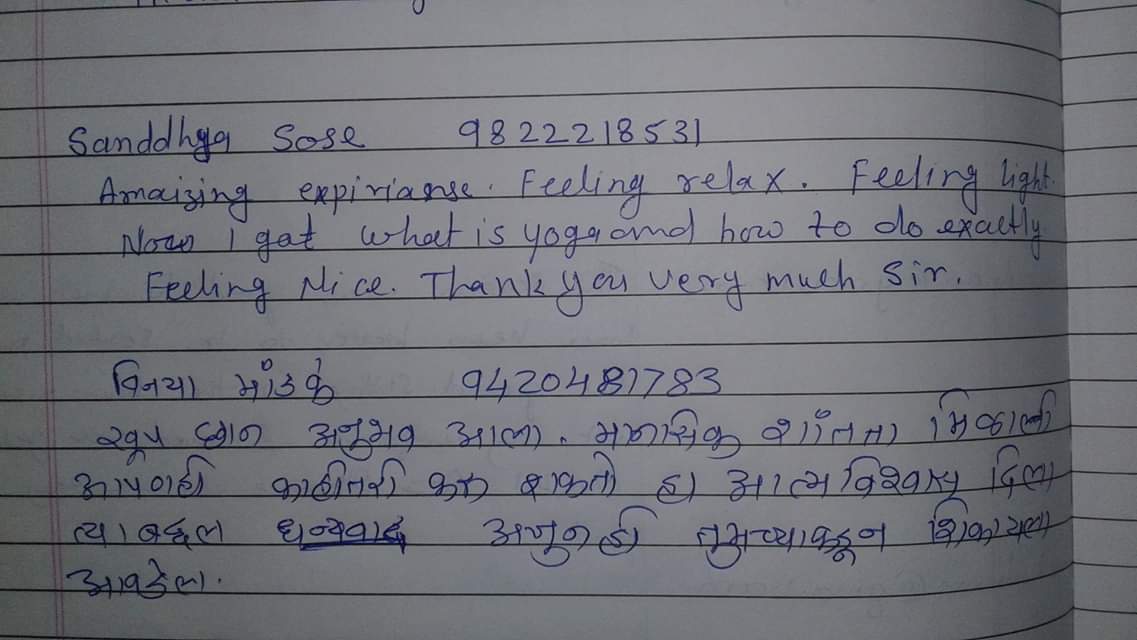 Sanddhya Sose 9822218531
Amaizing expirianse. Feeling relax. Feeling light.
Now I gat what is yoga and how to do exactly
Feeling Nice. Thank you very much Sir.
विनया 9420481783
खूप छान अनुभव आला. मानसिक शांतता मिळाली
आपणही काहीतरी करू शकतो हा आत्मविश्वास दिला
त्याबद्दल धन्यवाद अजुनही तुमच्याकडून शिकायला
आवडेल.